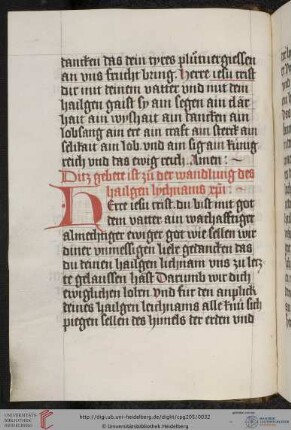 dancken das dein tyres plůtuergiessen
an vns frucht bring. Herre iesu crist
dir mit deinem vatter vnd mit dem
hailgen gaist sy ain segen ain clar
hait ain wyßhait ain dancken ain
lobsang ain ere ain craft ain sterck ain
ain lob. vnd ain sig ain künig
reich vnd das ewig reich. Amen: ~
Ditz gebett ist zů der wandlung des
hailgen lychnams xpi: ~
HErre iesu crist. du bist mit got
dem vatter ain warhafftiger
almechtiger ewiger got wie sellen wir
diner vnmessigen liebe gedancken das
du deinen hailgen lichnam vns zu letz
te gelaussen hast Darumb wir dich
ewiglichen loben vnd für den anplick
deines hailgen leichnams alle knü sich
piegen sellen des himels der erden vnd
UNIVERSITÄTS-
BIBLIOTHEK
HEIDELBERG
http://digi.ub.uni-heidelberg.de/diglit/cpg209/0032
© Universitätsbibliothek Heidelberg